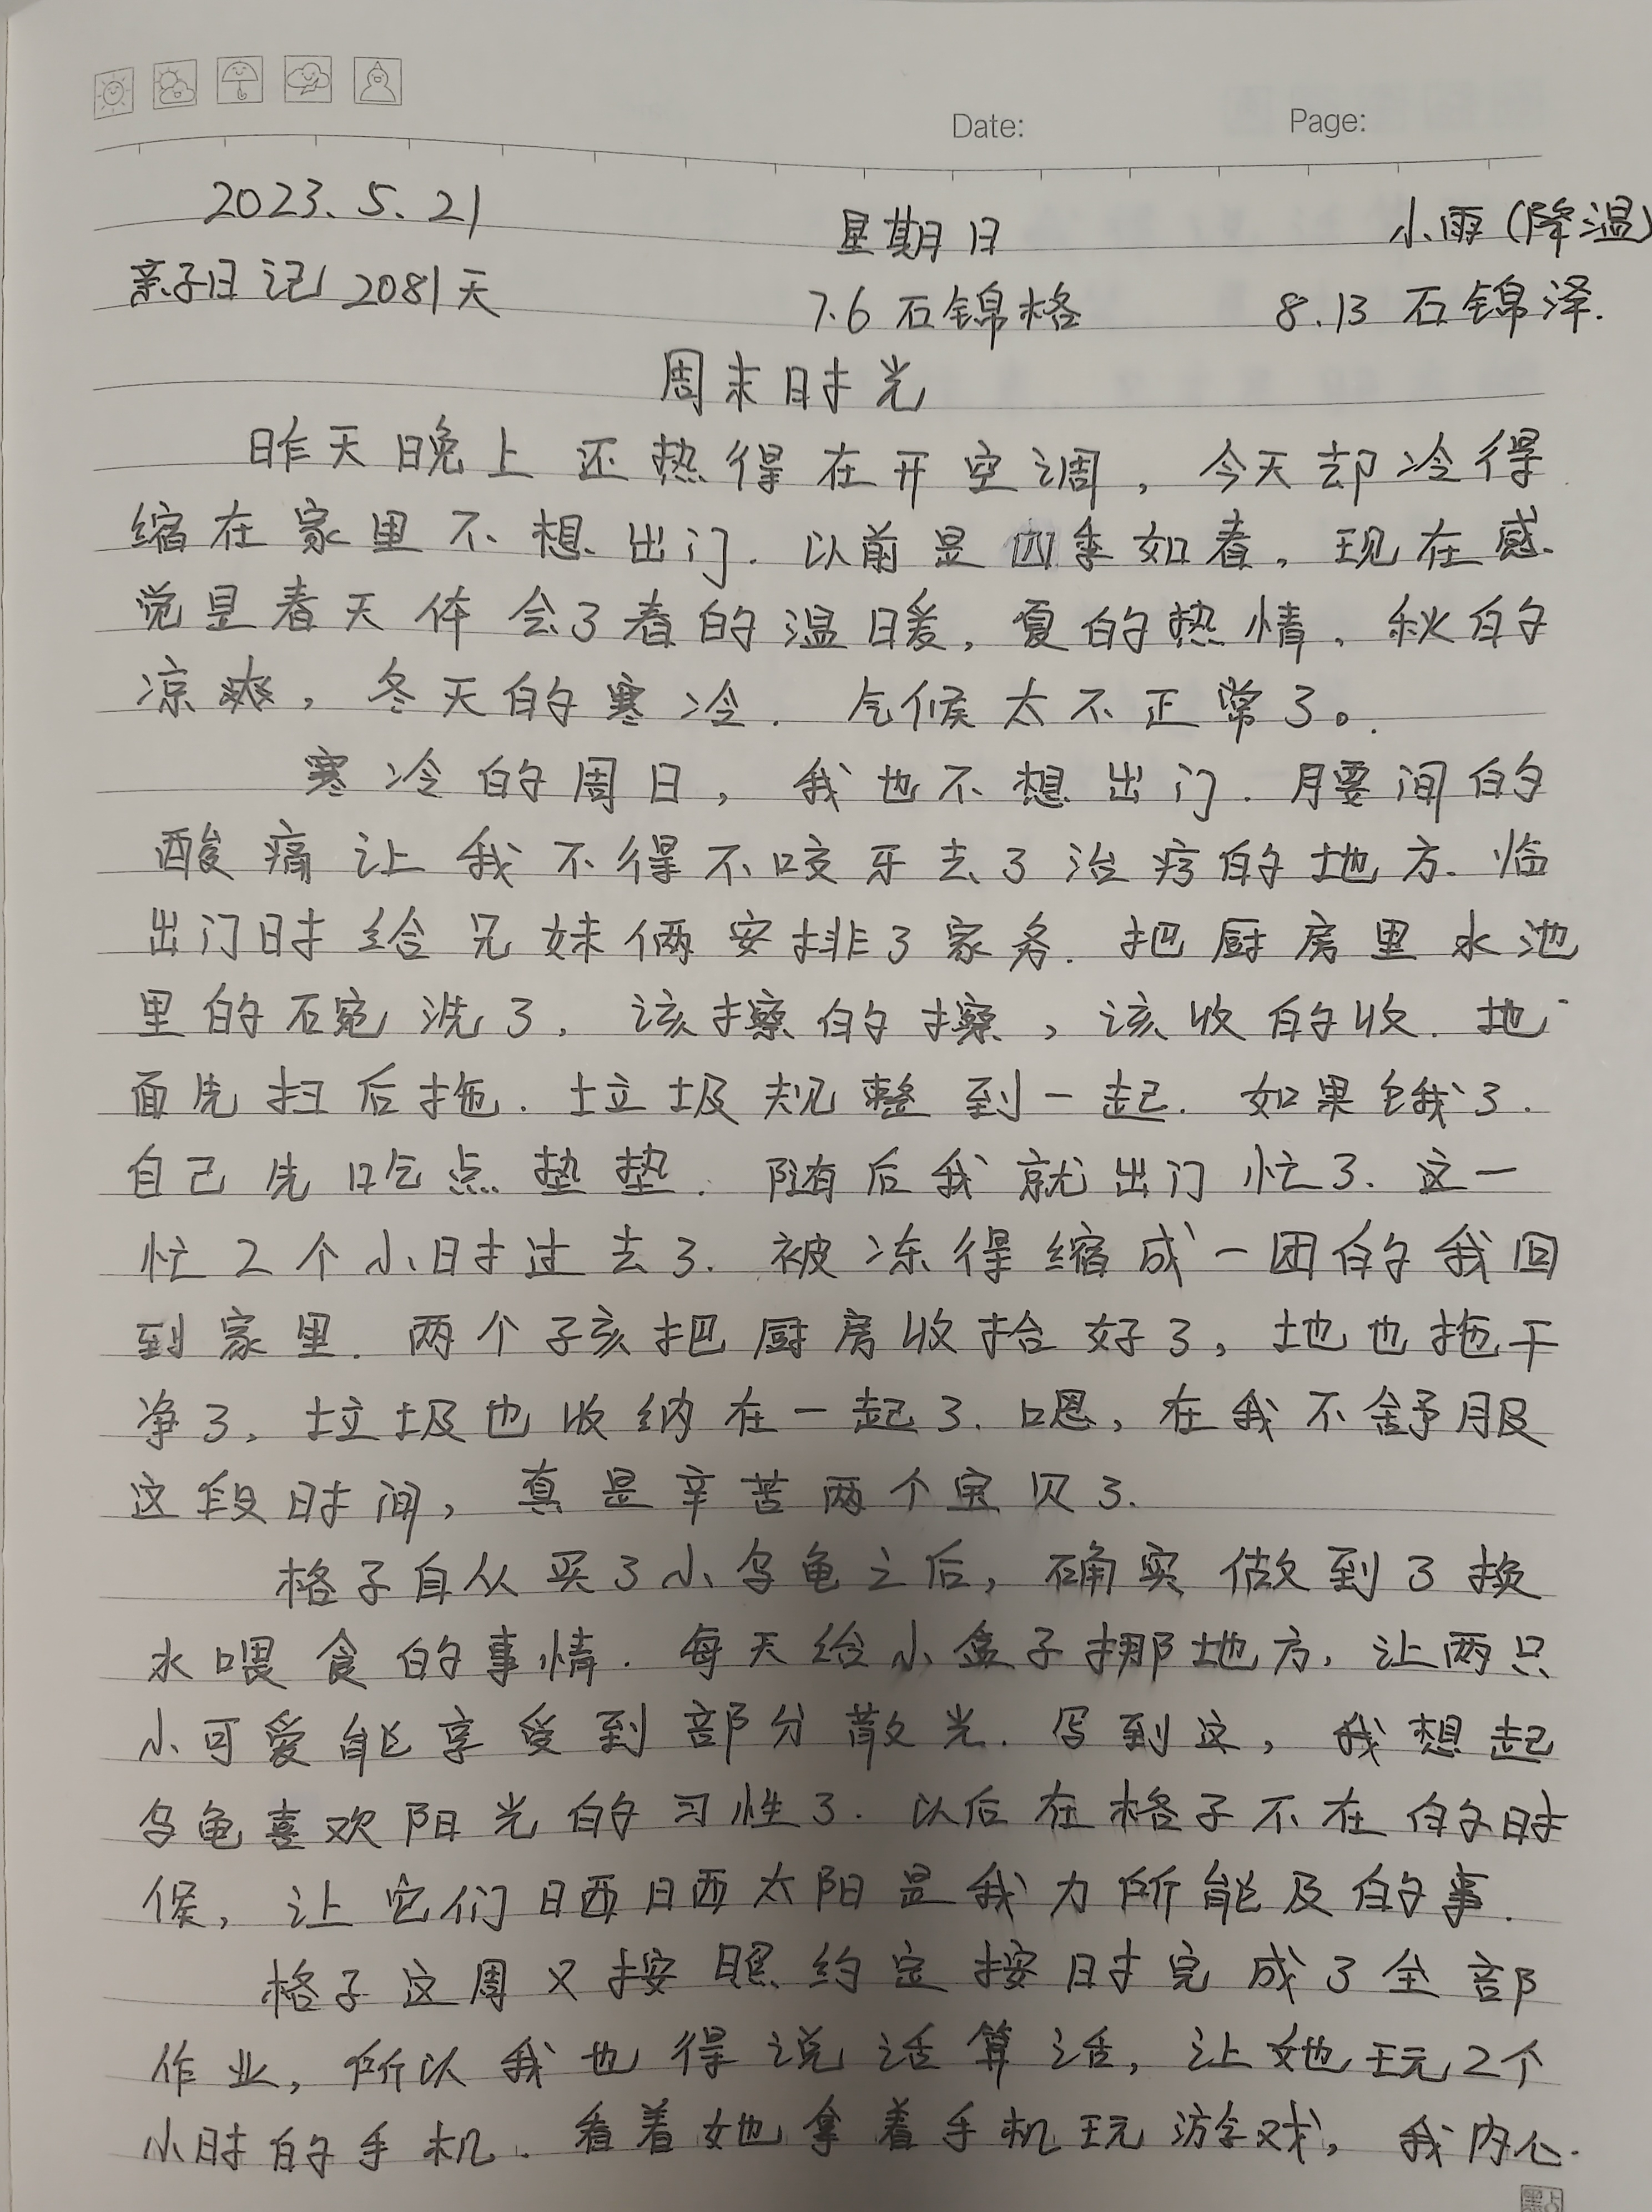 Date:
Page:
2023.5.21 星期日 小雨(降温)
亲子日记 2081天 7.6 石锦格 8.13 石锦泽.
周末时光
昨天晚上还热得在开空调，今天却冷得
缩在家里不想出门.以前是四季如春，现在感
觉是春天体会了春的温暖，夏的热情，秋的
凉爽，冬天的寒冷.气候太不正常了。
寒冷的周日，我也不想出门.腰间的
酸痛让我不得不咬牙去了治疗的地方.临
出门时给兄妹俩安排了家务.把厨房里水池
里的碗洗了，该擦的擦，该收的收.地
面先扫后拖.垃圾规整到一起.如果饿了.
自己先吃点垫垫.随后我就出门忙了.这一
忙2个小时过去了.被冻得缩成一团的我回
到家里.两个孩把厨房收拾好了，地也拖干
净了，垃圾也收纳在一起了.嗯，在我不舒服
这段时间，真是辛苦两个宝贝了.
格子自从买了小乌龟之后，确实做到了换
水喂食的事情.每天给小盒子挪地方，让两只
小可爱能享受到部分散光.写到这，我想起
乌龟喜欢阳光的习性了.以后在格子不在的时
候，让它们晒晒太阳是我力所能及的事.
格子这周又按照约定按时完成了全部
作业，所以我也得说话算话，让她玩2个
小时的手机.看着她拿着手机玩游戏，我内心.